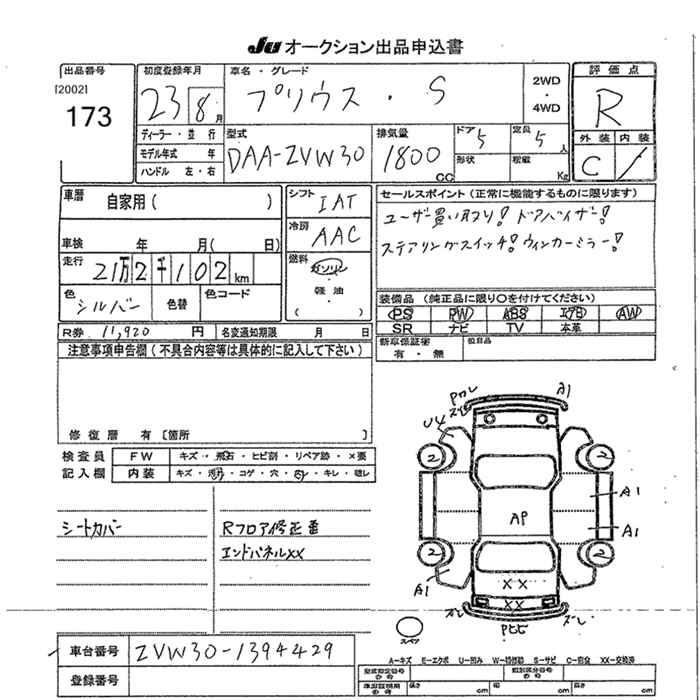 JU オークション出品申込書
出品番号
[2002]
173
初度登録年月
23 8月
車名・グレード
プリウス・S
2WD
・
4WD
評価点
R
外装 内装
C
ディーラー・並行
モデル年式 年
ハンドル 左・右
型式
DAA-ZVW30
排気量
1800
CC
ドア 5
形状
定員 5人
積載
Kg
車歴
自家用( )
車検 年 月( 日)
走行
21万2千102km
色
シルバー
色替
色コード
シフト
IAT
冷房
AAC
燃料
ガソリン
・
軽油
( )
セールスポイント(正常に機能するものに限ります)
ユーザー買い取り! ドアバイザー!
ステアリングスイッチ! ウィンカーミラー!
装備品(純正品に限り○を付けてください)
PS PW ABS エアB AW
SR ナビ TV 本革
新車保証書
有・無
R券 11,920 円
名変通知期限 月 日
注意事項申告欄(不具合内容等は具体的に記入して下さい)
修復歴 有[箇所 ]
検査員
記入欄
FW
キズ・飛石・ヒビ割・リペア跡・×要
内装
シートカバー
Rフロア修正番
エンドパネルXX
A1
U4
2
2
A1
AP
A1
2
2
A1
XX
XX
スペア
車台番号
ZVW30-1394429
登録番号
A-キズ E-エクボ U-凹み W-補修跡 S-サビ C-腐食 XX-交換済
cm
cm
cm